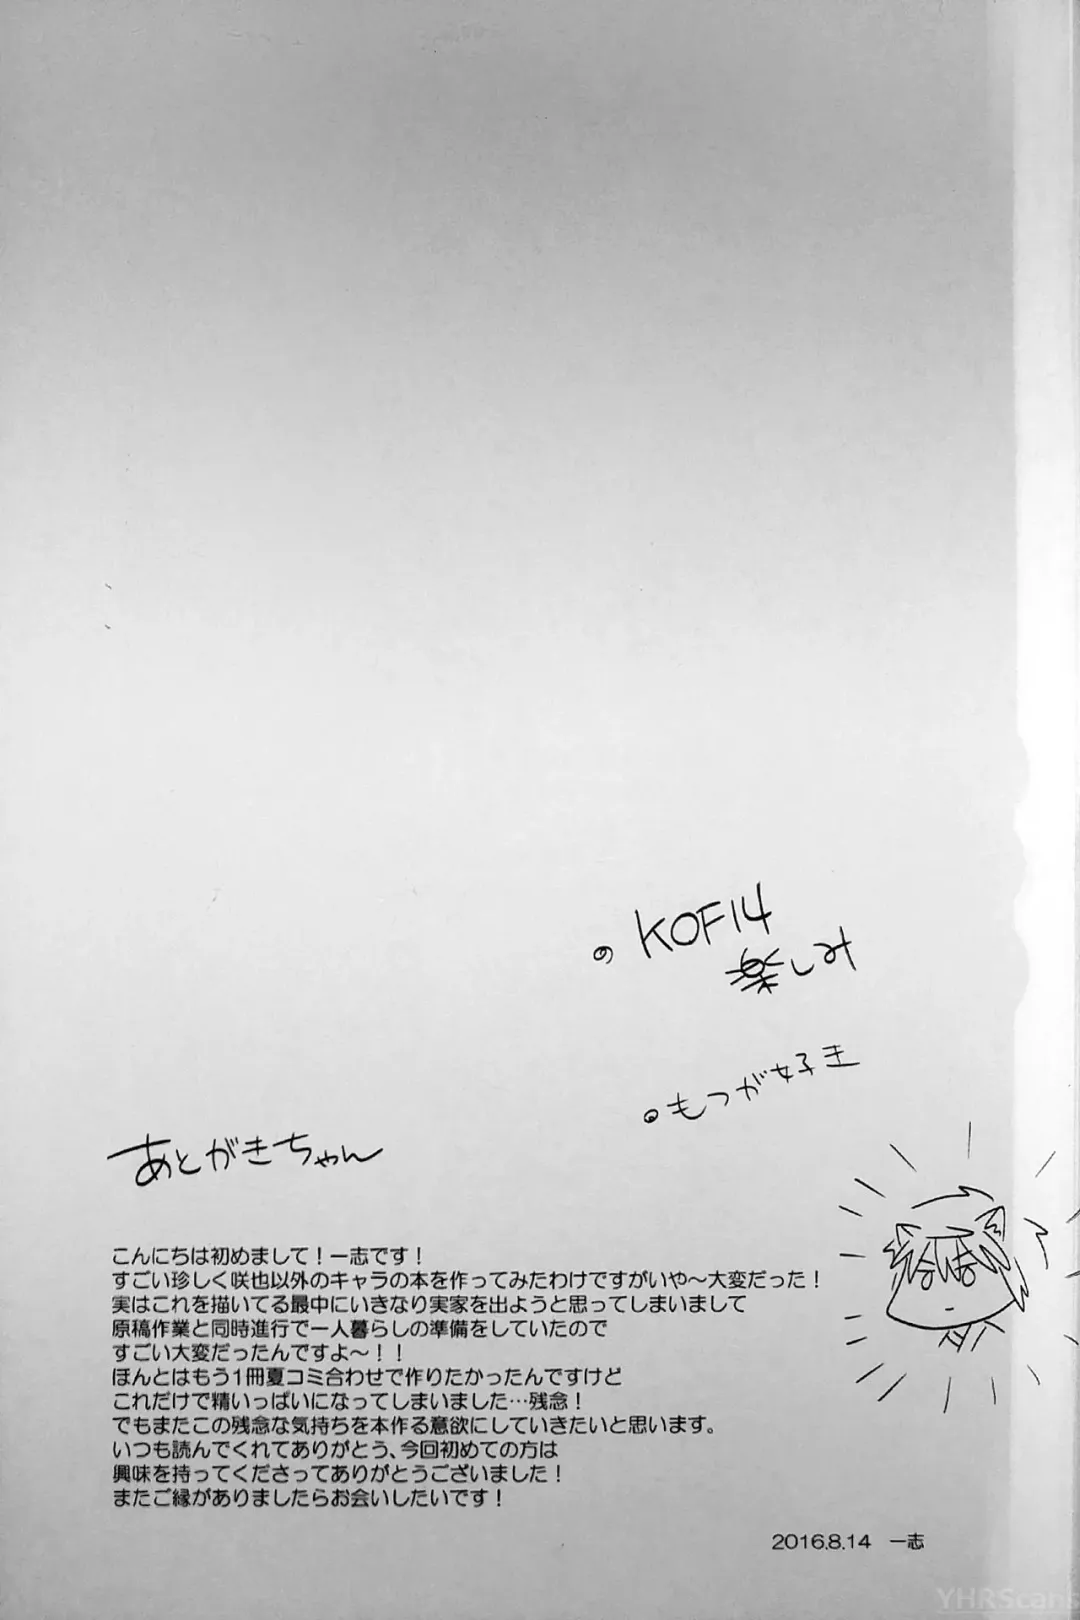 KOF14
楽しみ
もつが好き
あとがきちゃん
こんにちは初めまして！一志です！
すごい珍しく咲也以外のキャラの本を作ってみたわけですがいや～大変だった！
実はこれを描いてる最中にいきなり実家を出ようと思ってしまいまして
原稿作業と同時進行で一人暮らしの準備をしていたので
すごい大変だったんですよ～！！
ほんとはもう1冊夏コミ合わせで作りたかったんですけど
これだけで精いっぱいになってしまいました…残念！
でもまたこの残念な気持ちを本作る意欲にしていきたいと思います。
いつも読んでくれてありがとう、今回初めての方は
興味を持ってくださってありがとうございました！
またご縁がありましたらお会いしたいです！
2016.8.14 一志
YHRScans